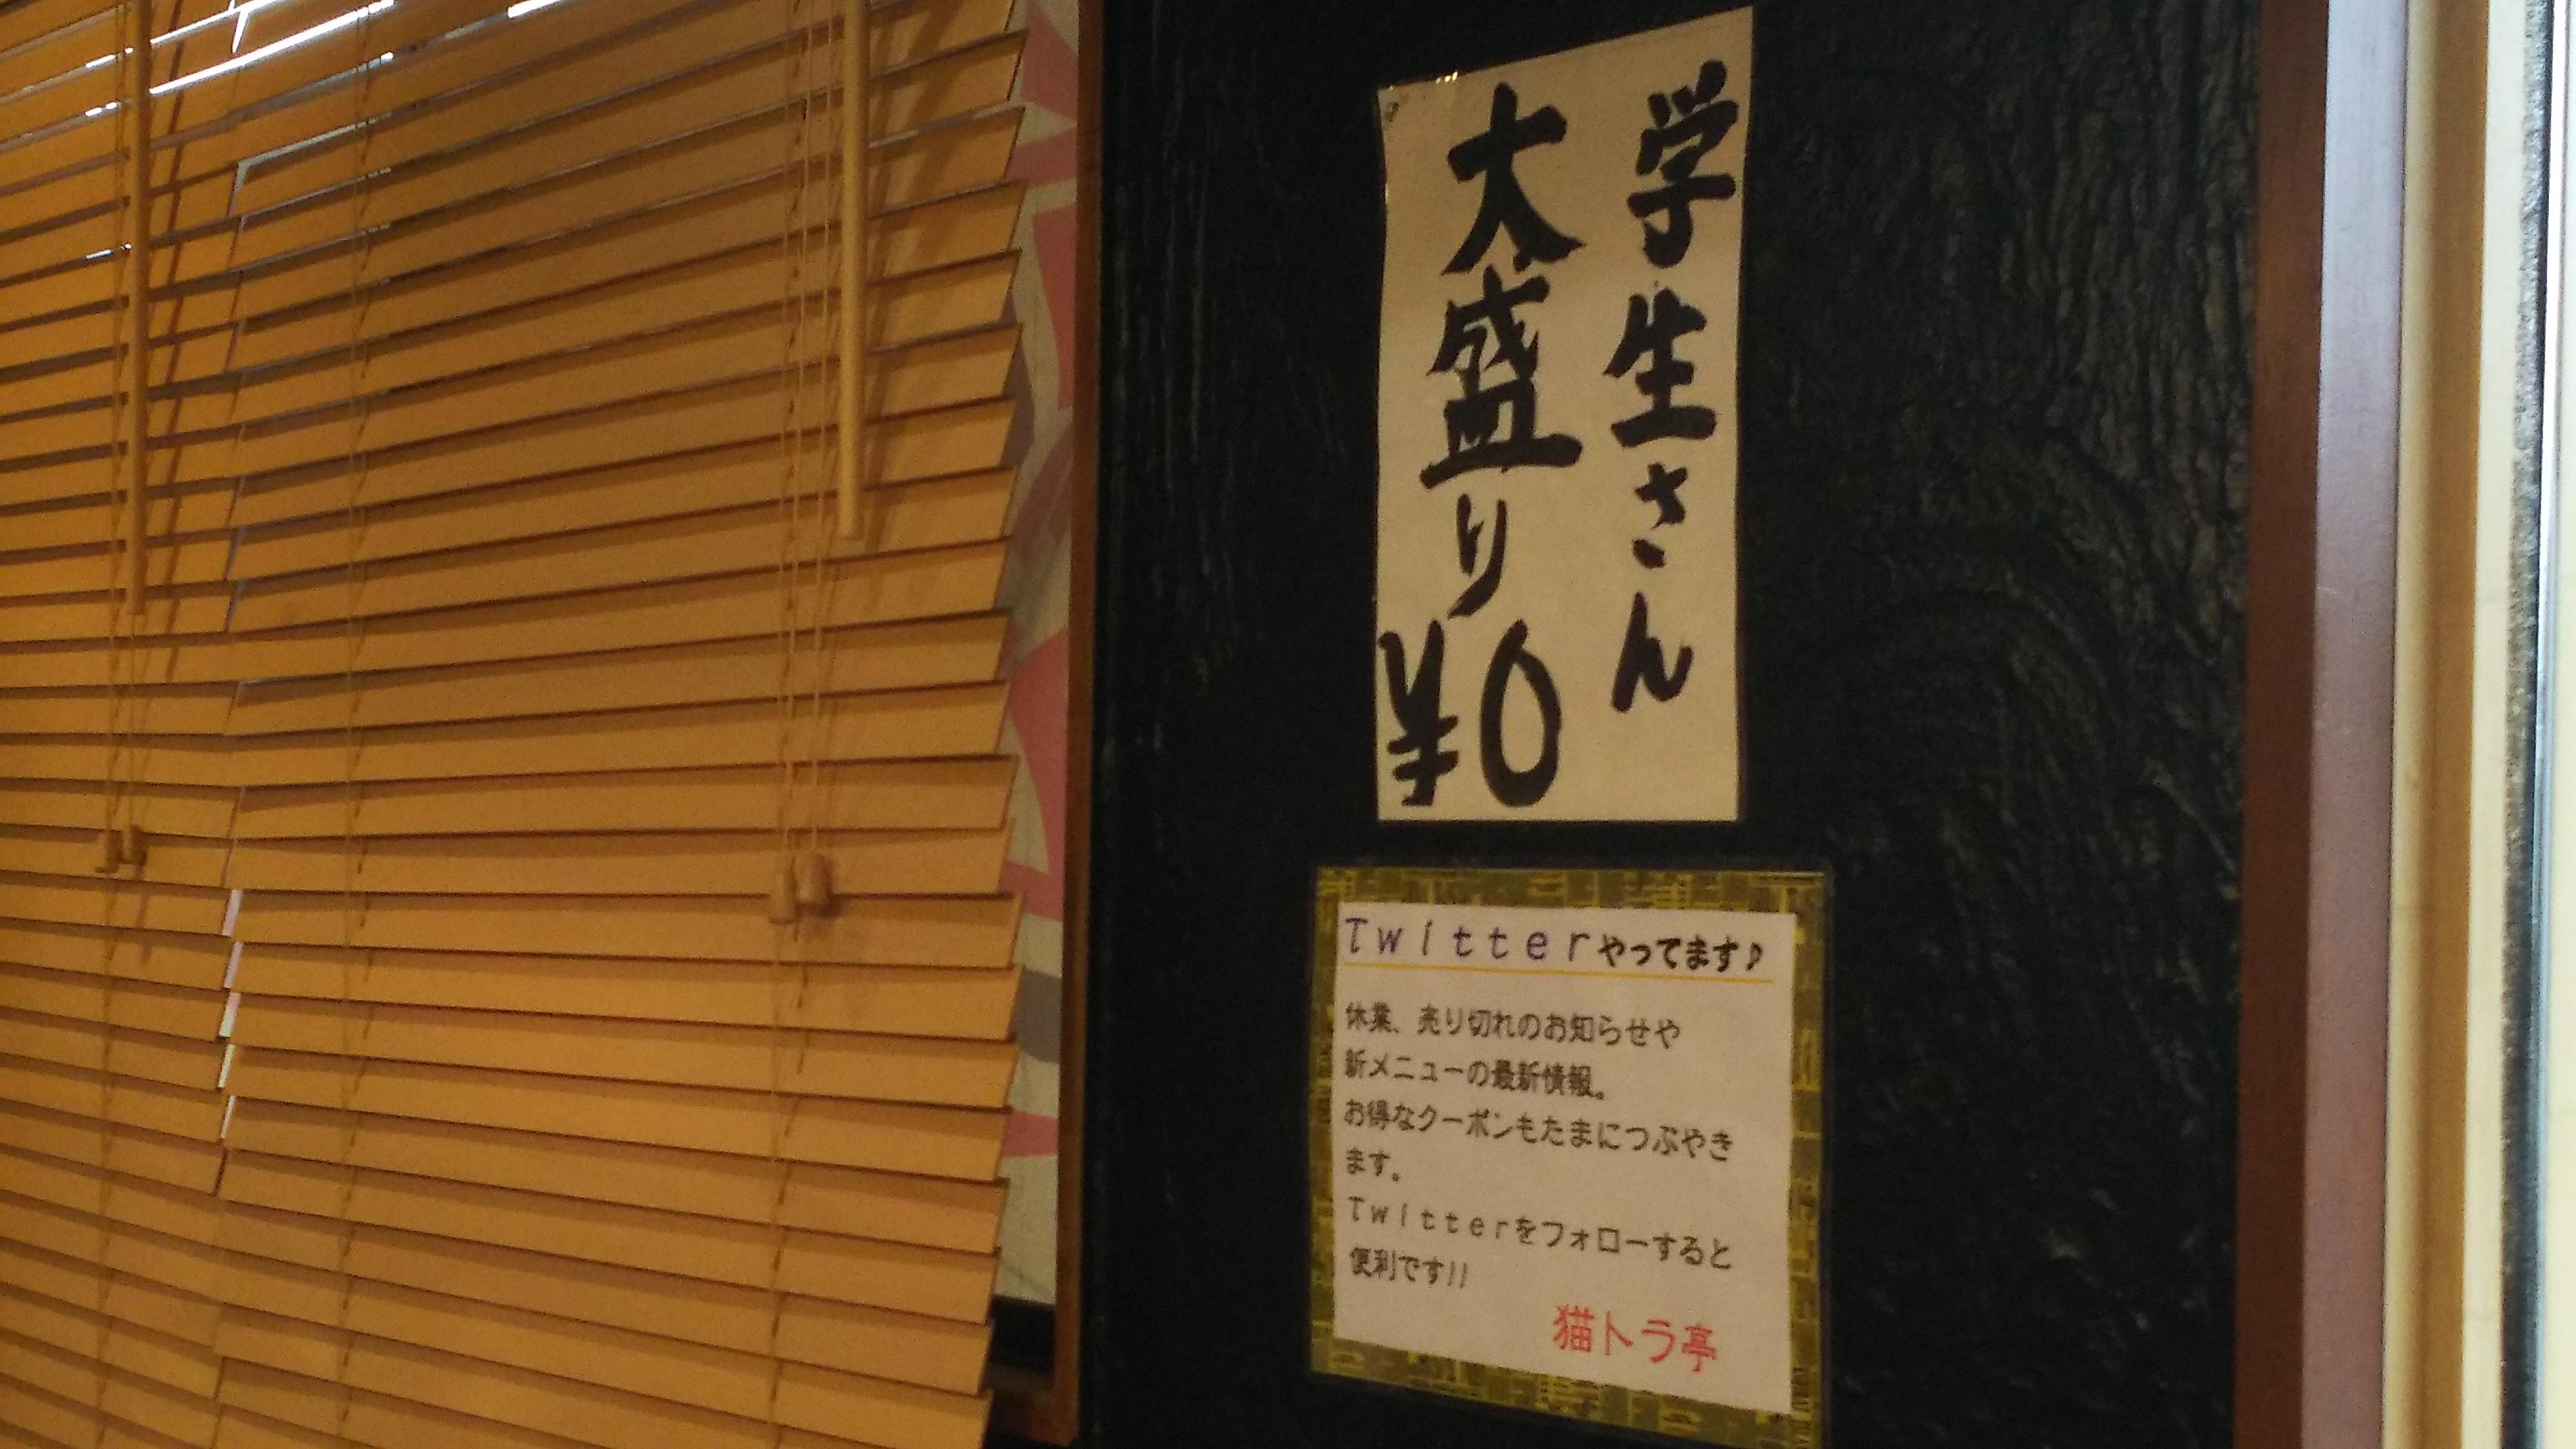 学生さん
大盛り
¥0
Twitterやってます♪
休業、売り切れのお知らせや
新メニューの最新情報。
お得なクーポンもたまにつぶやき
ます。
Twitterをフォローすると
便利です!!
猫トラ亭